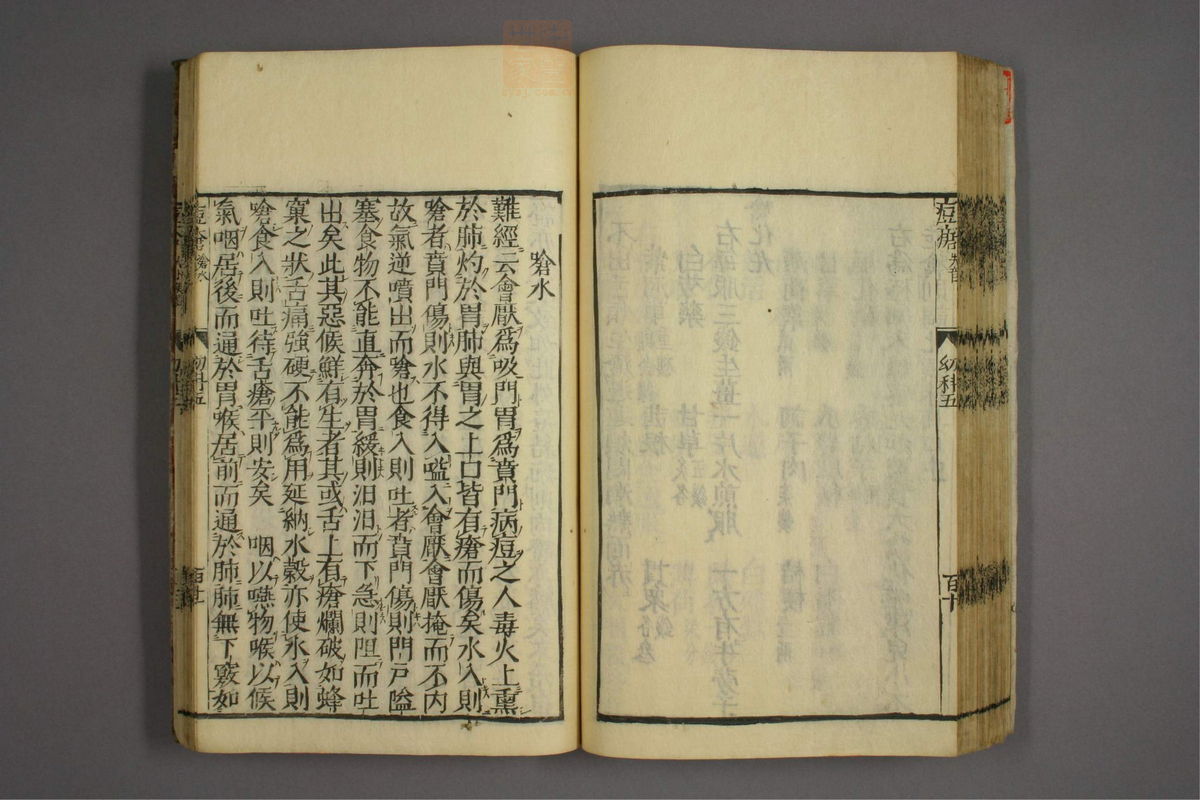 痘瘡
幼科五
百十
嗆水
難經云會厭爲吸門胃爲賁門病痘之人毒火上熏
於肺灼於胃肺與胃之上口皆有瘡而傷矣水入則
嗆者賁門傷則水不得入嗌入會厭會厭掩而不內
故氣逆噴出而嗆也食入則吐者賁門傷則門戸嗌
塞食物不能直奔於胃緩則汨汨而下急則阻而吐
出矣此其惡候鮮有生者其或舌上有瘡爛破如蜂
窠之狀舌痛強硬不能爲用延納水穀亦使水入則
嗆食入則吐待舌瘡平則安矣　咽以嚥物喉以候
氣咽居後而通於胃喉居前而通於肺肺無下竅如
痘瘡 嗆水
幼科五